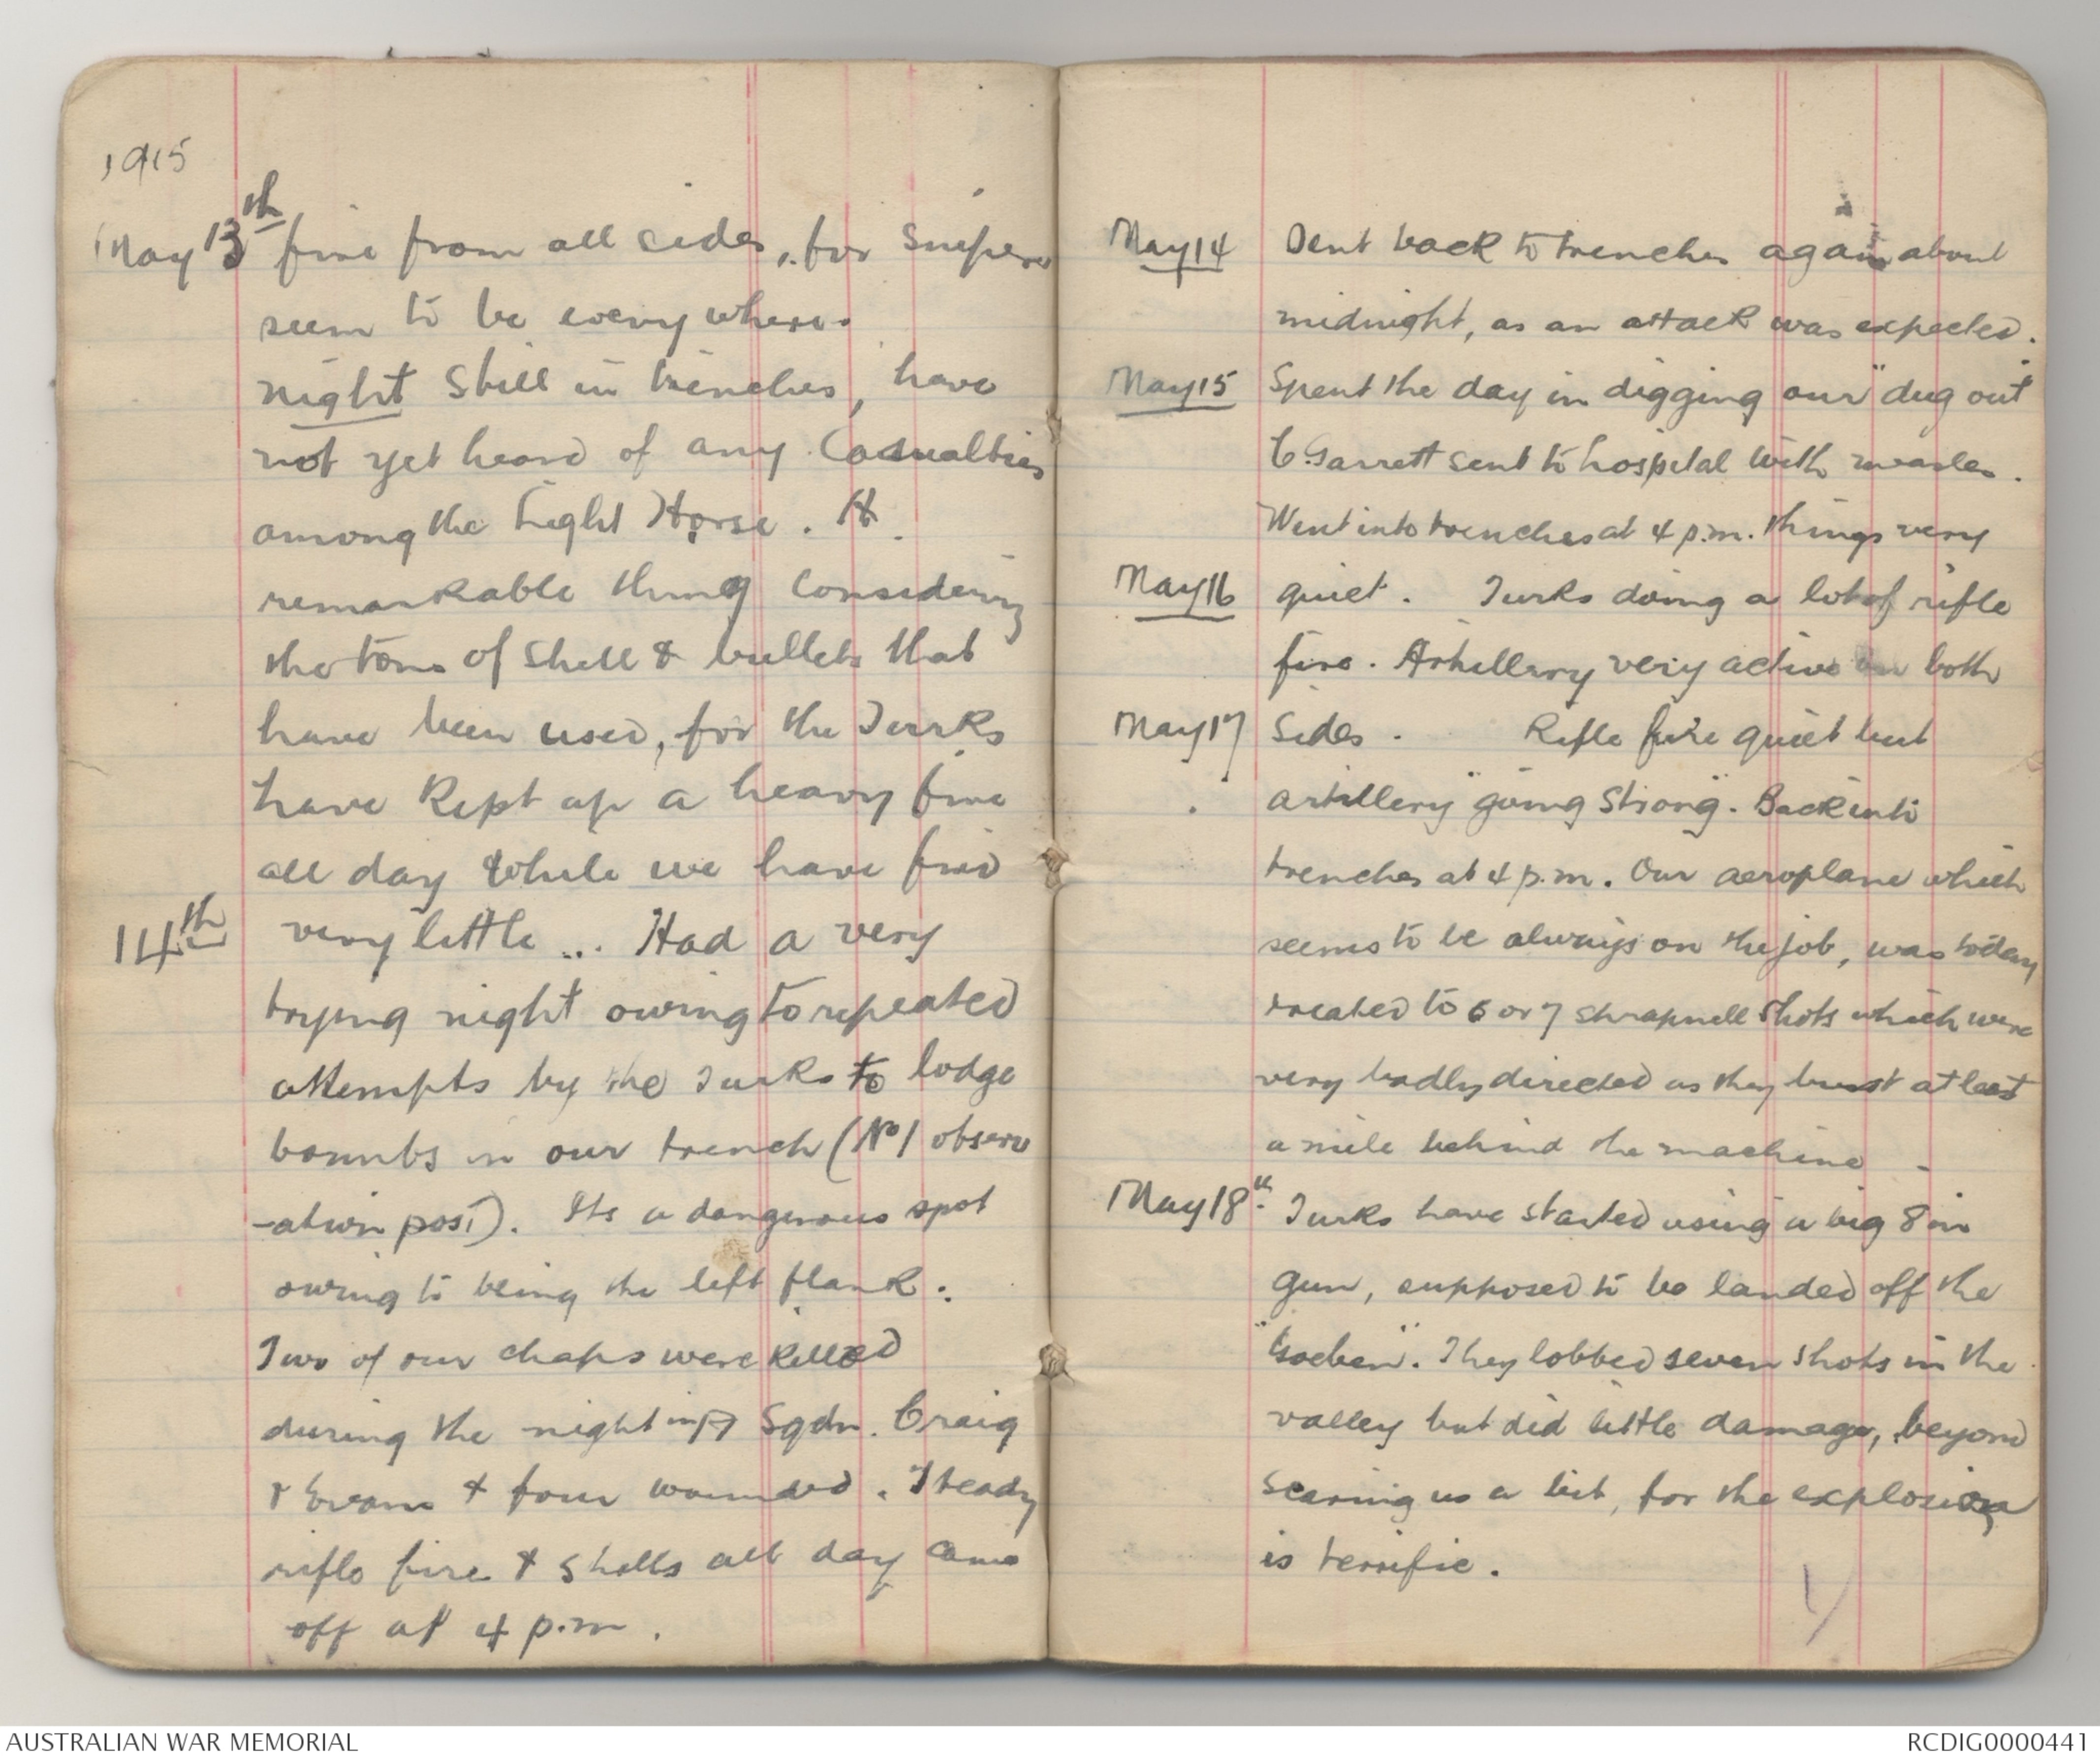 1915
May 13th fire from all sides, for snipers
seem to be everywhere.
night Still in trenches, have
not yet heard of any Casualties
among the Light Horse. A
remarkable thing Considering
the tons of Shell & bullets that
have been used, for the Turks
have Kept up a heavy fire
all day While we have fired
14th very little ... Had a very
trying night owing to repeated
attempts by the Turks to lodge
bombs in our trench (No 1 observ
-ation post). Its a dangerous spot
owing to being the left flank.
Two of our chaps were Killed
during the night in Sqdn. Craig
& Evans & four wounded. Steady
rifle fire & Shells all day Came
off at 4 p.m.
May 14 Sent back to trenches again about
midnight, as an attack was expected.
May 15 Spent the day in digging our "dug out"
C. Garrett sent to hospital with measles.
Went into trenches at 4 p.m. things very
May 16 quiet. Turks doing a lot of rifle
fire. Artillery very active on both
May 17 Sides. Rifle fire quiet but
artillery "going Strong". Back into
trenches at 4 p.m. Our aeroplane which
seems to be always on the job, was today
treated to 6 or 7 shrapnell shots which were
very badly directed as they burst at least
a mile behind the machine -
May 18th. Turks have started using a big 8 in
gun, supposed to be landed off the
"Goeben". They lobbed seven shots in the
valley but did little damage, beyond
Scaring us a bit, for the explosion
is terrific.
AUSTRALIAN WAR MEMORIAL
RCDIG0000441